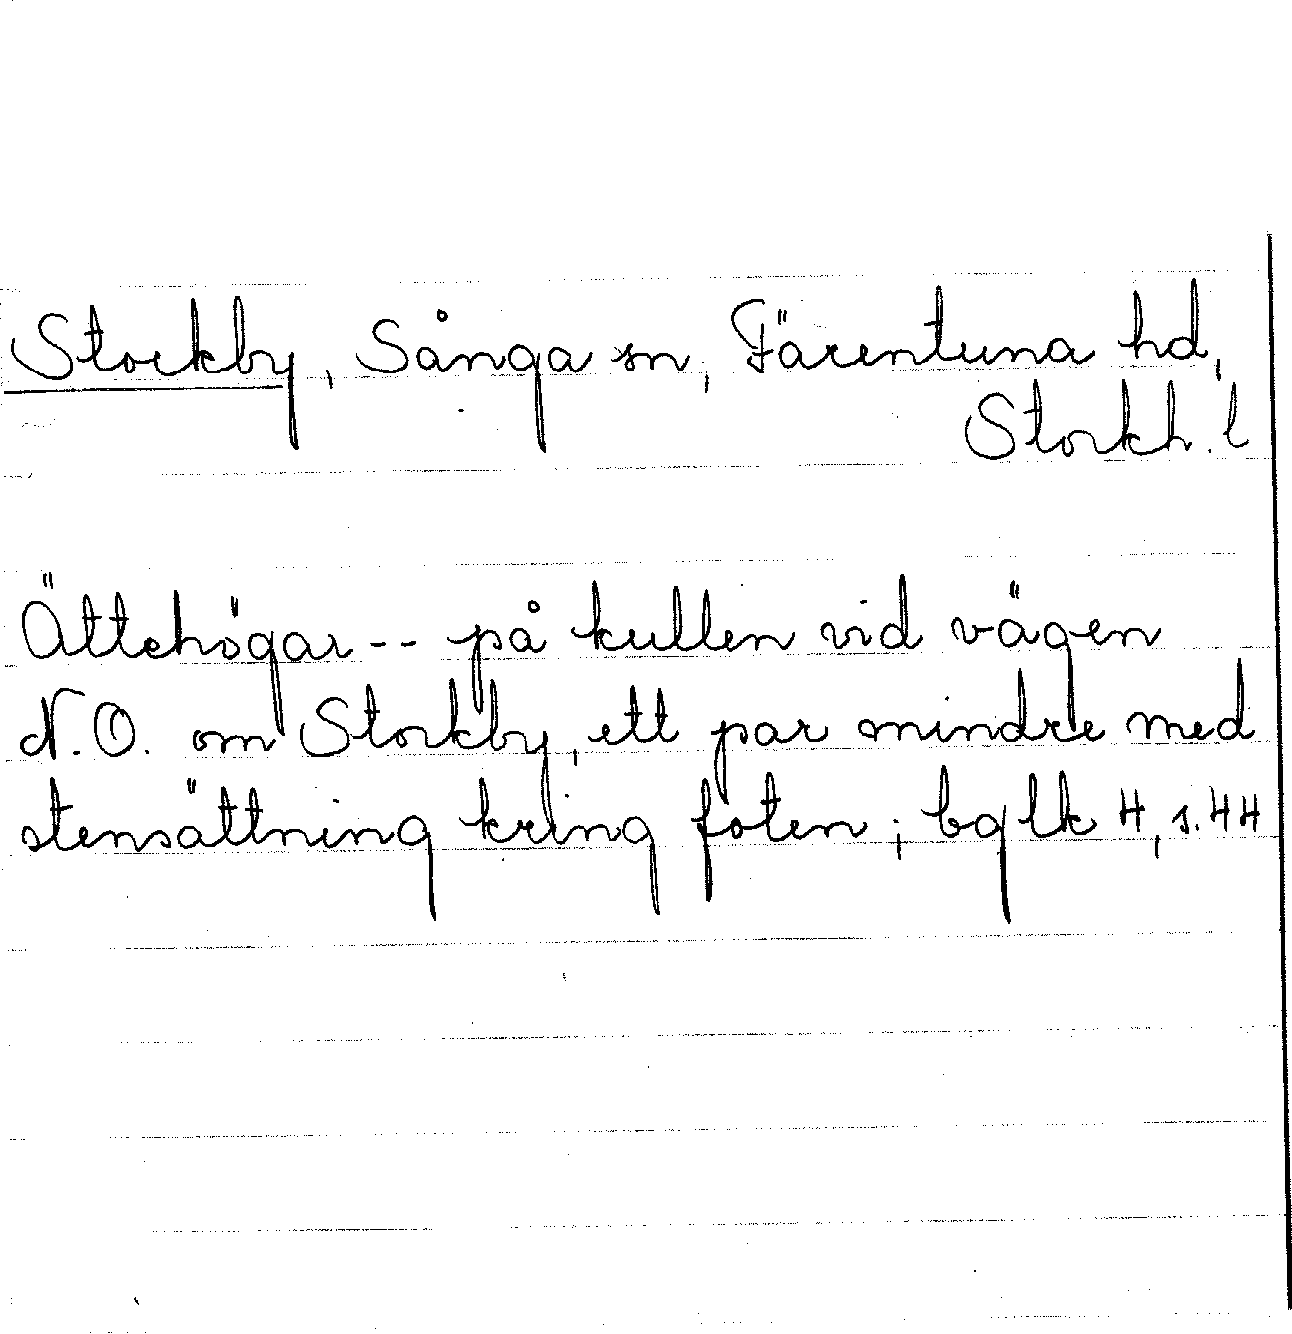 Stockby, Sånga sn, Färentuna hd,
Stockh. l
Ättehögar -- på kullen vid vägen
N.O. om Stockby, ett par mindre med
stensättning kring foten; bglk 4, s. 44